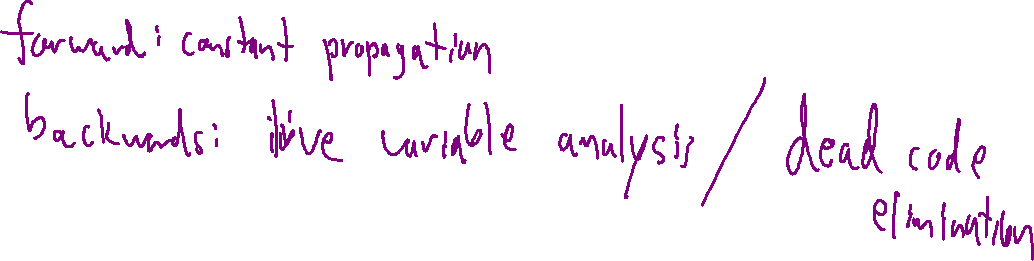 forward: constant propagation
backwards: live variable analysis / dead code
elimination